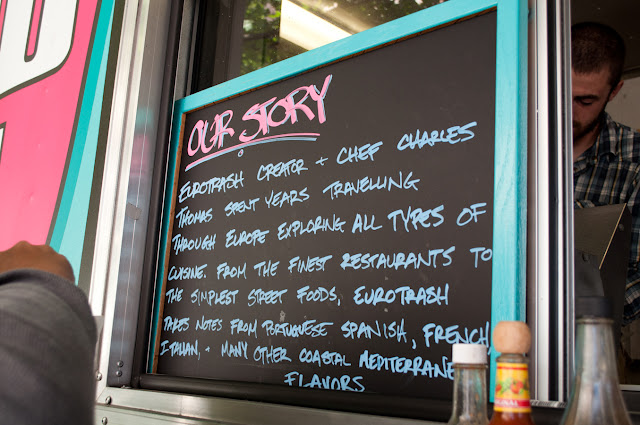 OUR STORY
EUROTRASH CREATOR + CHEF CHARLES
THOMAS SPENT YEARS TRAVELLING
THROUGH EUROPE EXPLORING ALL TYPES OF
CUISINE. FROM THE FINEST RESTAURANTS TO
THE SIMPLEST STREET FOODS, EUROTRASH
TAKES NOTES FROM PORTUGUESE SPANISH, FRENCH
ITALIAN, + MANY OTHER COASTAL MEDITERRANE
FLAVORS
ORIGINAL